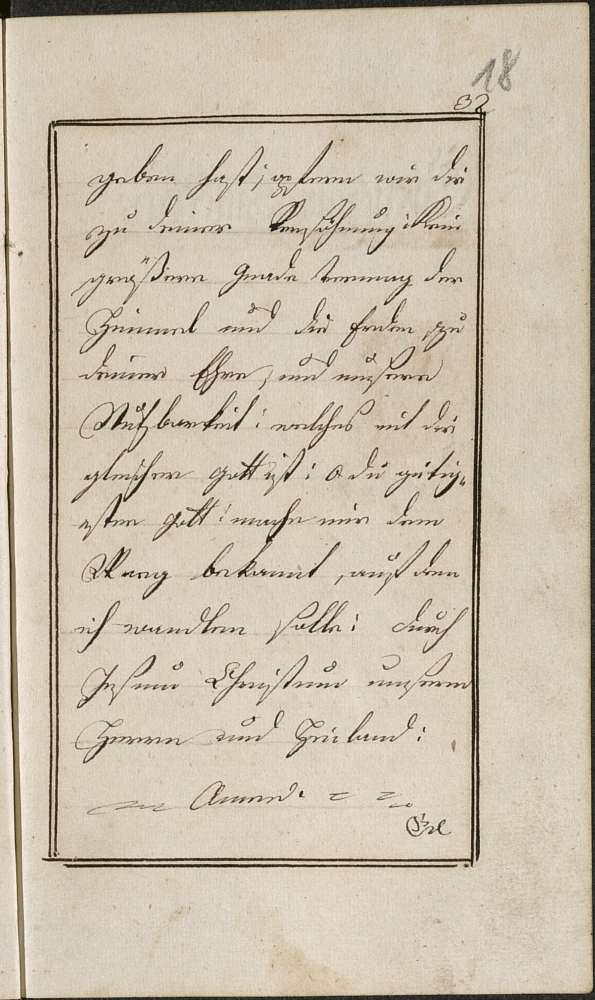 18
32
geben hast; opferen wir dir
zu deiner Versöhnung: Kein
größere Gnade vermag der
Himmel und die Erden, zu
deiner Ehre, und unserer
Nutzbarkeit: welches mit dir
gleicher gott ist: O du gütig,
ester gott! mache mir dem
Weeg bekannt, auf dem
ich wandlen solle: durch
Jesum Christum unserem
Herren und Heiland:
Amen.